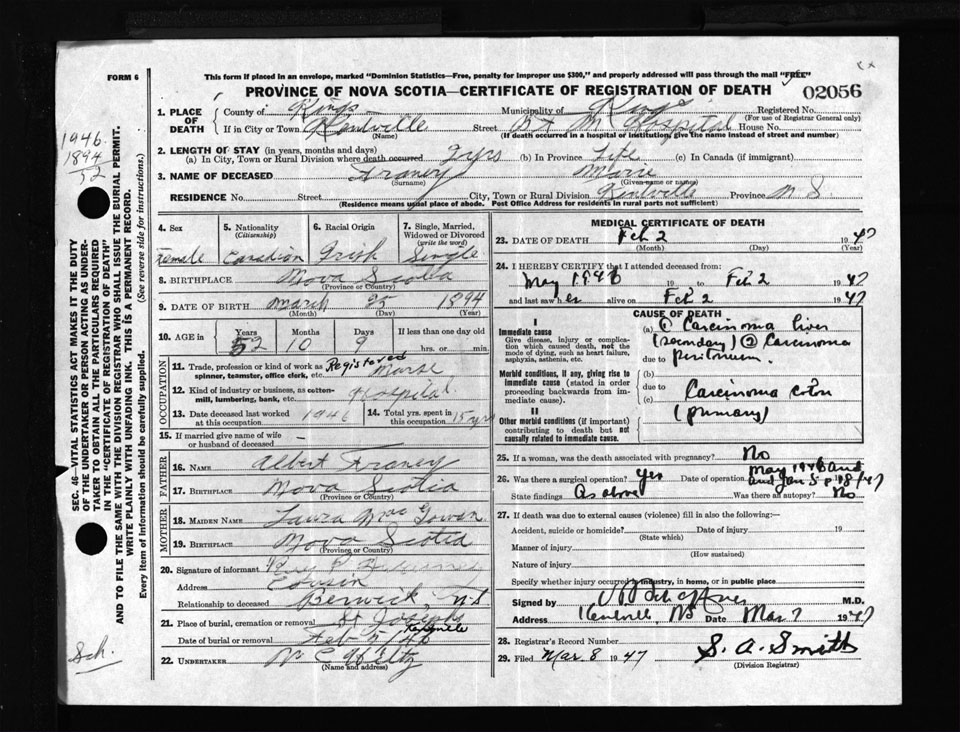 FORM 6
This form if placed in an envelope, marked "Dominion Statistics—Free, penalty for improper use $300," and properly addressed will pass through the mail "FREE"
PROVINCE OF NOVA SCOTIA—CERTIFICATE OF REGISTRATION OF DEATH
02056
1946
1894
52
1. PLACE OF DEATH
County of Kings Municipality of Kings Registered No.
(For use of Registrar General only)
If in City or Town Kentville Street B F M Hospital House No.
(Name) (If death occurred in a hospital or institution, give the name instead of street and number)
2. LENGTH OF STAY (in years, months and days)
(a) In City, Town or Rural Division where death occurred 7 yrs (b) In Province Life (c) In Canada (if immigrant)
3. NAME OF DECEASED Franey Marie
(Surname) (Given name or names)
RESIDENCE No. Street City, Town or Rural Division Kentville Province N S
(Residence means usual place of abode. Post Office Address for residents in rural parts not sufficient)
4. Sex Female
5. Nationality (Citizenship) Canadian
6. Racial Origin Irish
7. Single, Married, Widowed or Divorced (write the word) Single
8. BIRTHPLACE Nova Scotia
(Province or Country)
9. DATE OF BIRTH March 25 1894
(Month) (Day) (Year)
10. AGE in Years Months Days If less than one day old
52 10 9 hrs. or min.
OCCUPATION
11. Trade, profession or kind of work as spinner, teamster, office clerk, etc. Registered Nurse
12. Kind of industry or business, as cotton-mill, lumbering, bank, etc. Hospital
13. Date deceased last worked at this occupation 1946
14. Total yrs. spent in this occupation 15 yrs
15. If married give name of wife or husband of deceased —
FATHER
16. NAME Albert Franey
17. BIRTHPLACE Nova Scotia
(Province or Country)
MOTHER
18. MAIDEN NAME Laura MacGowan
19. BIRTHPLACE Nova Scotia
(Province or Country)
20. Signature of informant
Address Cousin
Relationship to deceased Berwick, N.S
21. Place of burial, cremation or removal St Josephs Kentville
Date of burial or removal Feb 5
22. UNDERTAKER
(Name and address)
MEDICAL CERTIFICATE OF DEATH
23. DATE OF DEATH Feb 2 1947
(Month) (Day) (Year)
24. I HEREBY CERTIFY that I attended deceased from:
May 1946 19 to Feb 2 1947
and last saw her alive on Feb 2 1947
CAUSE OF DEATH
I
Immediate cause
Give disease, injury or complication which caused death, not the mode of dying, such as heart failure, asphyxia, asthenia, etc.
(a) ① Carcinoma liver
(secondary) ② Carcinoma
due to peritoneum.
Morbid conditions, if any, giving rise to immediate cause (stated in order proceeding backwards from immediate cause).
(b)
due to
(c) Carcinoma colon
(primary)
II
Other morbid conditions (if important) contributing to death but not causally related to immediate cause.
25. If a woman, was the death associated with pregnancy? No
26. Was there a surgical operation? Yes Date of operation May 1946 and
State findings As above Was there an autopsy? No
27. If death was due to external causes (violence) fill in also the following:—
Accident, suicide or homicide? Date of injury 19
(State which)
Manner of injury
(How sustained)
Nature of injury
Specify whether injury occurred in industry, in home, or in public place
Signed by M.D.
Address Kentville, NS Date Mar 7 1947
28. Registrar's Record Number
29. Filed Mar. 8 1947 S. A. Smith
(Division Registrar)
SEC. 46—VITAL STATISTICS ACT MAKES IT THE DUTY OF THE UNDERTAKER OR PERSON ACTING AS UNDERTAKER TO OBTAIN ALL THE PARTICULARS REQUIRED IN THE "CERTIFICATE OF REGISTRATION OF DEATH" AND TO FILE THE SAME WITH THE DIVISION REGISTRAR WHO SHALL ISSUE THE BURIAL PERMIT.
WRITE PLAINLY WITH UNFADING INK. THIS IS A PERMANENT RECORD.
Every item of information should be carefully supplied. (See reverse side for instructions.)
Sch.